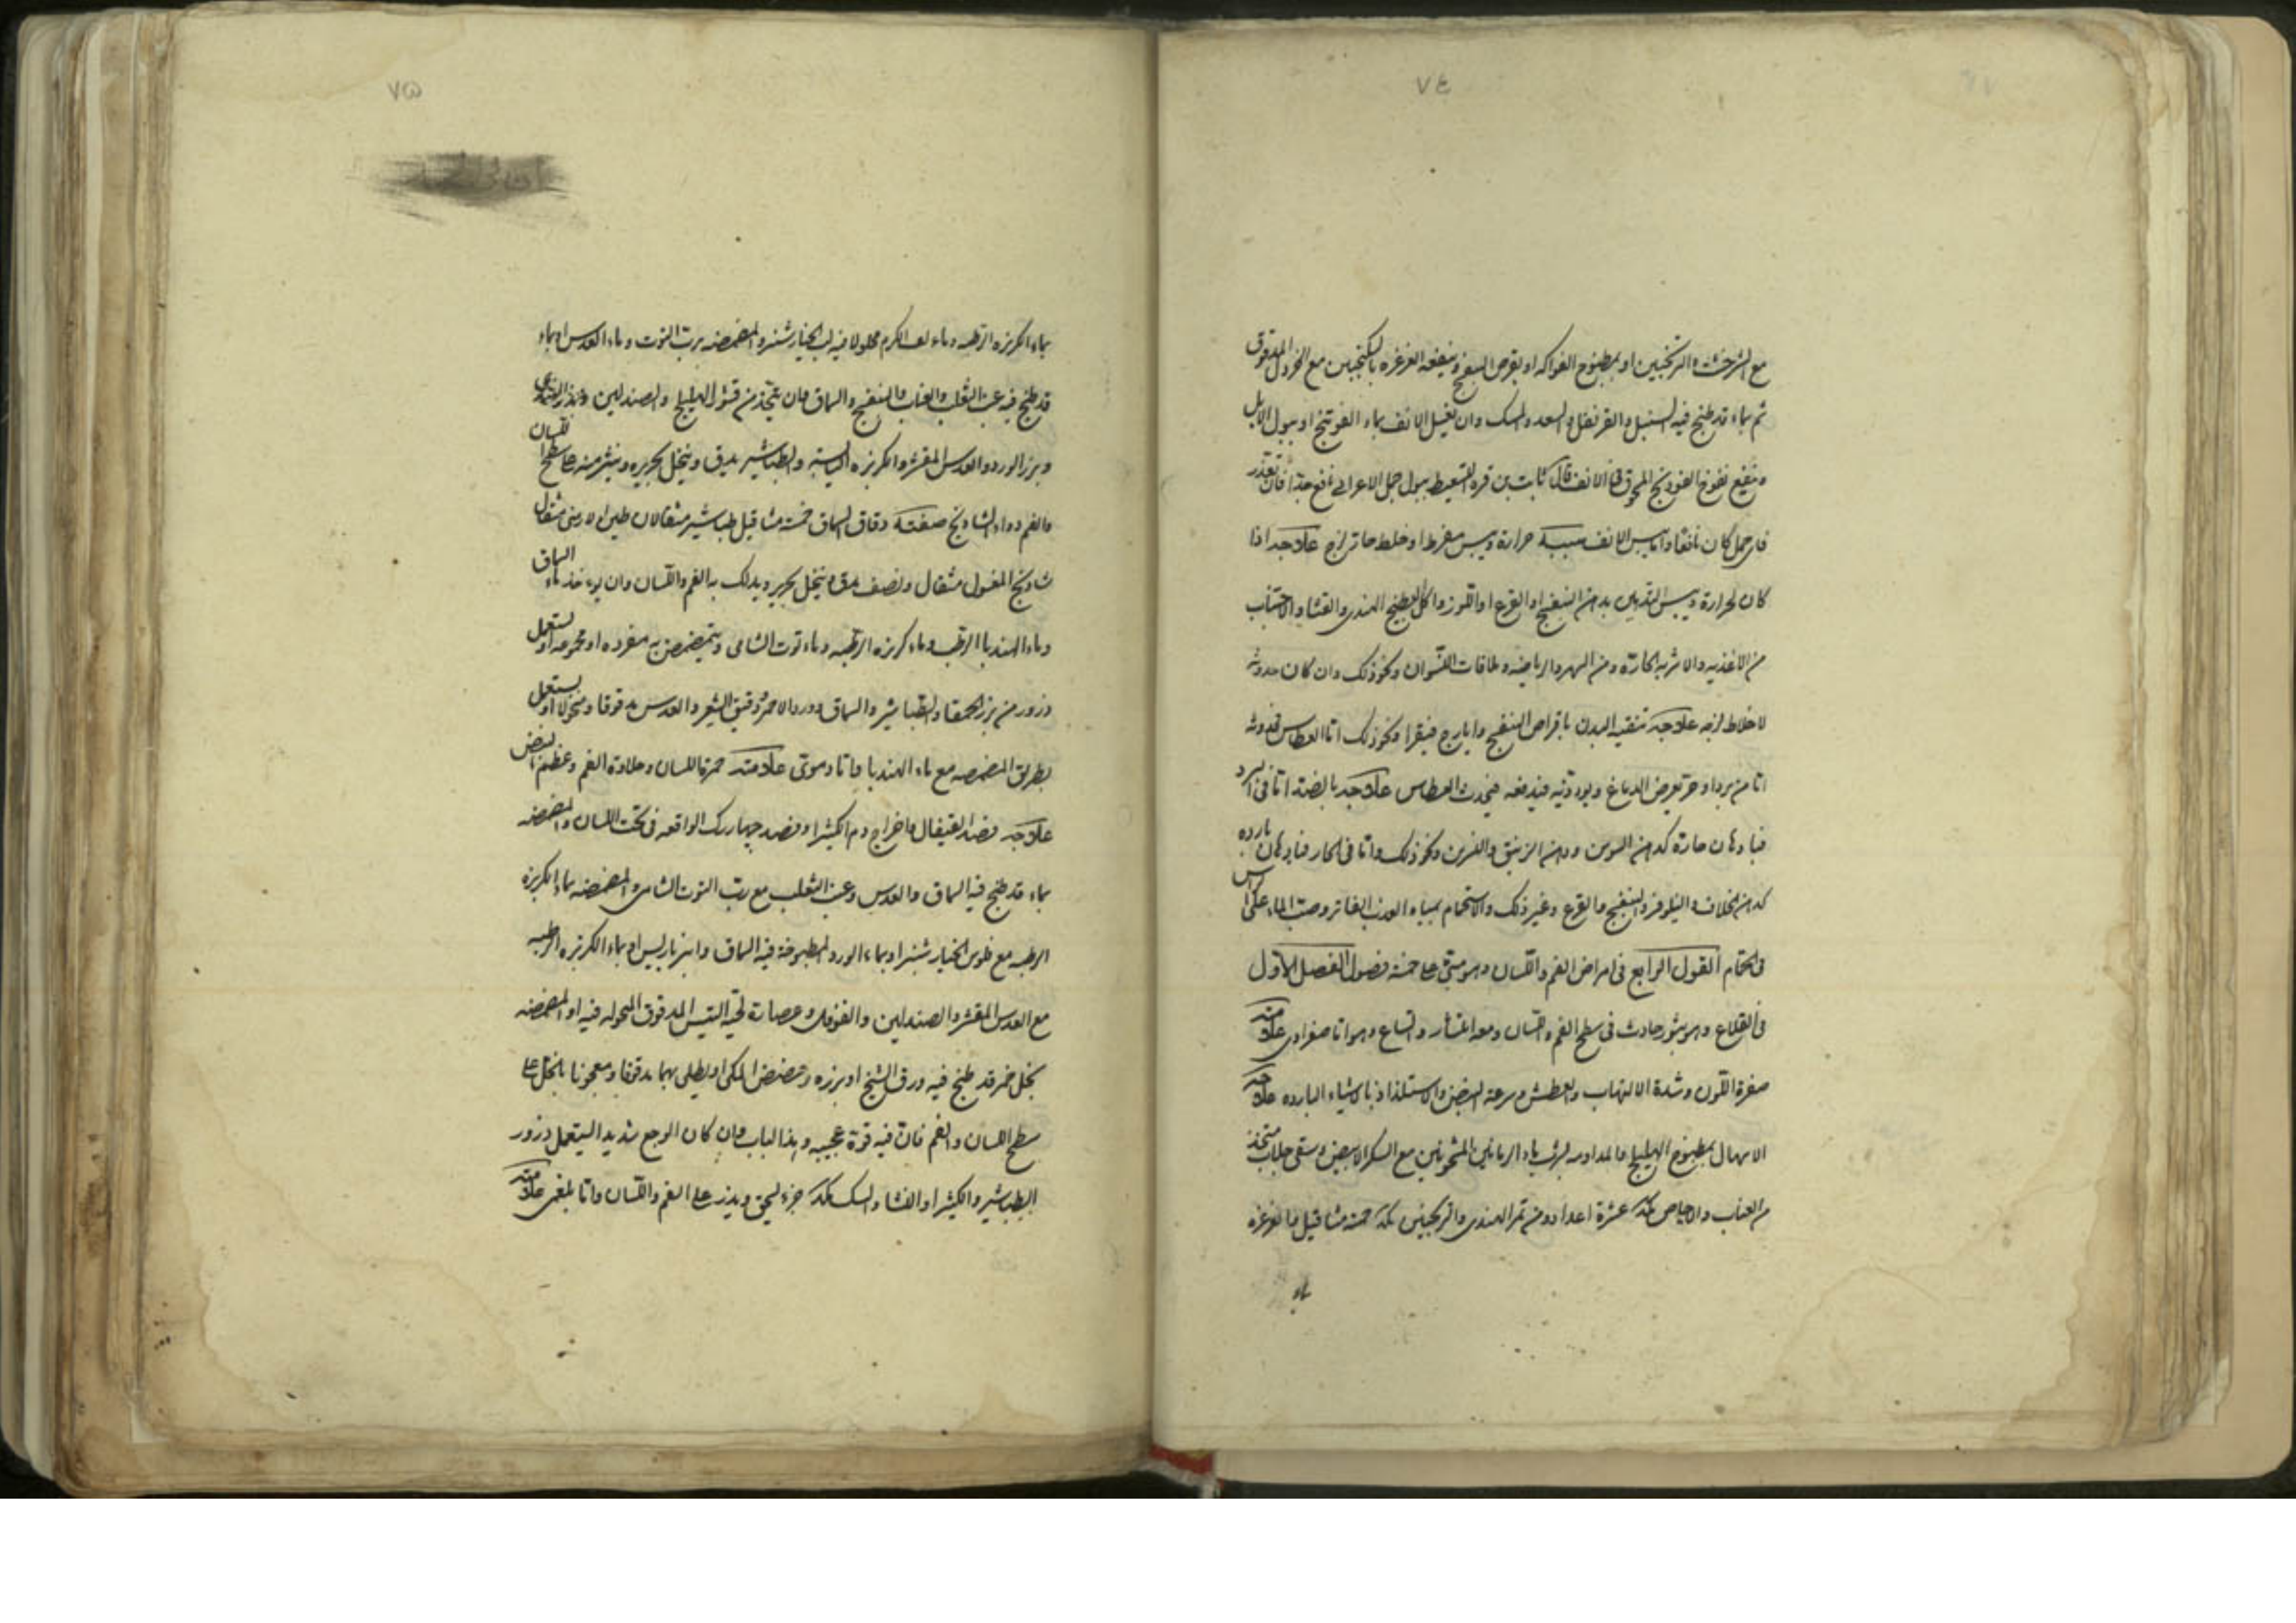 ٧٤
مع الشرخشت والترنجبين او بمطبوخ الفواكه او بقرص البنفسج وينفعه الغرغره بالسكنجبين مع الخردل المدقوق
ثم بماء قد طبخ فيه السنبل والقرنفل والسعد والمسك وان يغسل الانف بماء الفوتنج او ببول الابل
وينفع نفوخ الفودنج المحرق فى الانف قال ثابت بن قره السعيط ببول جمل الاعرابى نافع جدا فان تعذر
فاى جمل كان نافعا واما يبس الانف سببه حرارة ويبس مفرط او خلط حار لزج علاجه اذا
كان لحرارة ويبس التدهين بدهن البنفسج او القرع او اللوز واكل البطيخ الهندى والقثاء والاجتناب
من الاغذيه والاشربه الحارّه ومن السهر والرياضه وملاقات النسوان ونحو ذلك وان كان حدوثه
لاخلاط لزجه علاجه تنقيه البدن باقراص البنفسج وايارج فيقرا ونحو ذلك امّا العطاس فحدوثه
امّا من برد او حر تعرض الدماغ ويوذيه فيدفعه فيحدث العطاس علاجه بالضد امّا فى البرد
فبادهان حارة كدهن السوسن ودهن الزنبق والنسرين ونحو ذلك وامّا فى الحار فبادهان بارده
كدهن الخلاف والنيلوفر والبنفسج والقرع وغير ذلك والاستحمام بمياه العذب الفاتر وصبّ الماء على الراس
فى الحمّام القول الرابع فى امراض الفم واللّسان وهو مبنى على خمسة فصول الفصل الاول
فى القلاع وهو بثور حادث فى سطح الفم واللسان ومعه انتشار واتساع وهو امّا صفراوى علامته
صفرة اللّون وشدة الالتهاب والعطش وسرعة النبض والاستلذاذ بالاشياء البارده علاجه
الاسهال بمطبوخ الهليلج والمداومه بشرب ماء الرمانين المشحونين مع السكر الابيض وسقى جلاب متخذ
من العناب والاجاص مكد عشرة اعداد ومن تمر الهندى والترنجبين مكد خمسة مثاقيل والغرغره
بماء
٧٥
بماء الكزبره الرطبه وماء لف الكرم محلولا فيه لب الخيارشنبر والمضمضه بربّ التوت وماء العدس او بماء
قد طبخ فيه عنب الثعلب والعناب والبنفسج والسماق وان يتّخذ من قشر الهليلج والصندلين وبذر الهندبا
وبزر الورد والعدس المقشر والكزبره اليابسة والطباشير يدق وينخل بحريره وينثر منه على سطح اللسان
والفم دواء الشادنج صفته دقاق السماق خمسة مثاقيل طباشير مثقالان طين الارمنى مثقال
شادنج المغسول مثقال ونصف يدق وينخل بحرير ويدلك به الفم واللّسان وان يوءخذ ماء السماق
وماء الهندبا الرطب وماء كزبره الرطبه وماء توت الشامى ويتمضمض به مفرده او مجموعه او يستعمل
ذرور من بزر الحمقا والطباشير والسماق وورد الاحمر ودقيق الشعير والعدس مدقوقا ومنخولا او يستعمل
بطريق المضمضه مع ماء الهندبا وامّا دموى علامته حمرة اللسان وحلاوة الفم وعظم النبض
علاجه فصد القيفال واخراج دم الكثير او فصد چهاررك الواقعه فى تحت اللسان والمضمضه
بماء قد طبخ فيه السماق والعدس وعنب الثعلب مع ربّ التوت الشامى والمضمضه بماء الكزبره
الرطبه مع فلوس الخيارشنبر او بماء الورد المطبوخة فيه السماق وانبرباريس او بماء الكزبره الرطبه
مع العدس المقشر والصندلين والفوفل وعصارة لحية التيس المدقوق المحوله فيه او المضمضه
بخل خمر قد طبخ فيه ورق البنج او بزره وحضض المكى او يطلى بهما مدقوقا ومعجونا بالخل على
سطح اللسان والفم فان فيه قوة عجيبه وبهذا الباب وان كان الوجع شديد استعمل ذرور
الطباشير والكثيرا والنشا والسك مكد جزء يسحق ويذر على الفم واللّسان وامّا بلغمى علامته